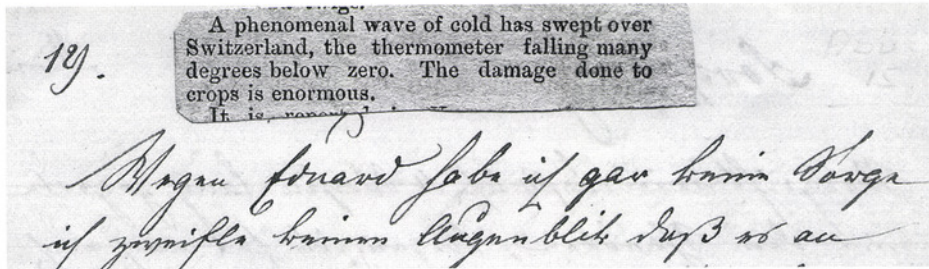 A phenomenal wave of cold has swept over
Switzerland, the thermometer falling many
degrees below zero. The damage done to
crops is enormous.
It is
Wegen Eduard habe ich gar keine Sorge
ich zweifle keinen Augenblik daß es an